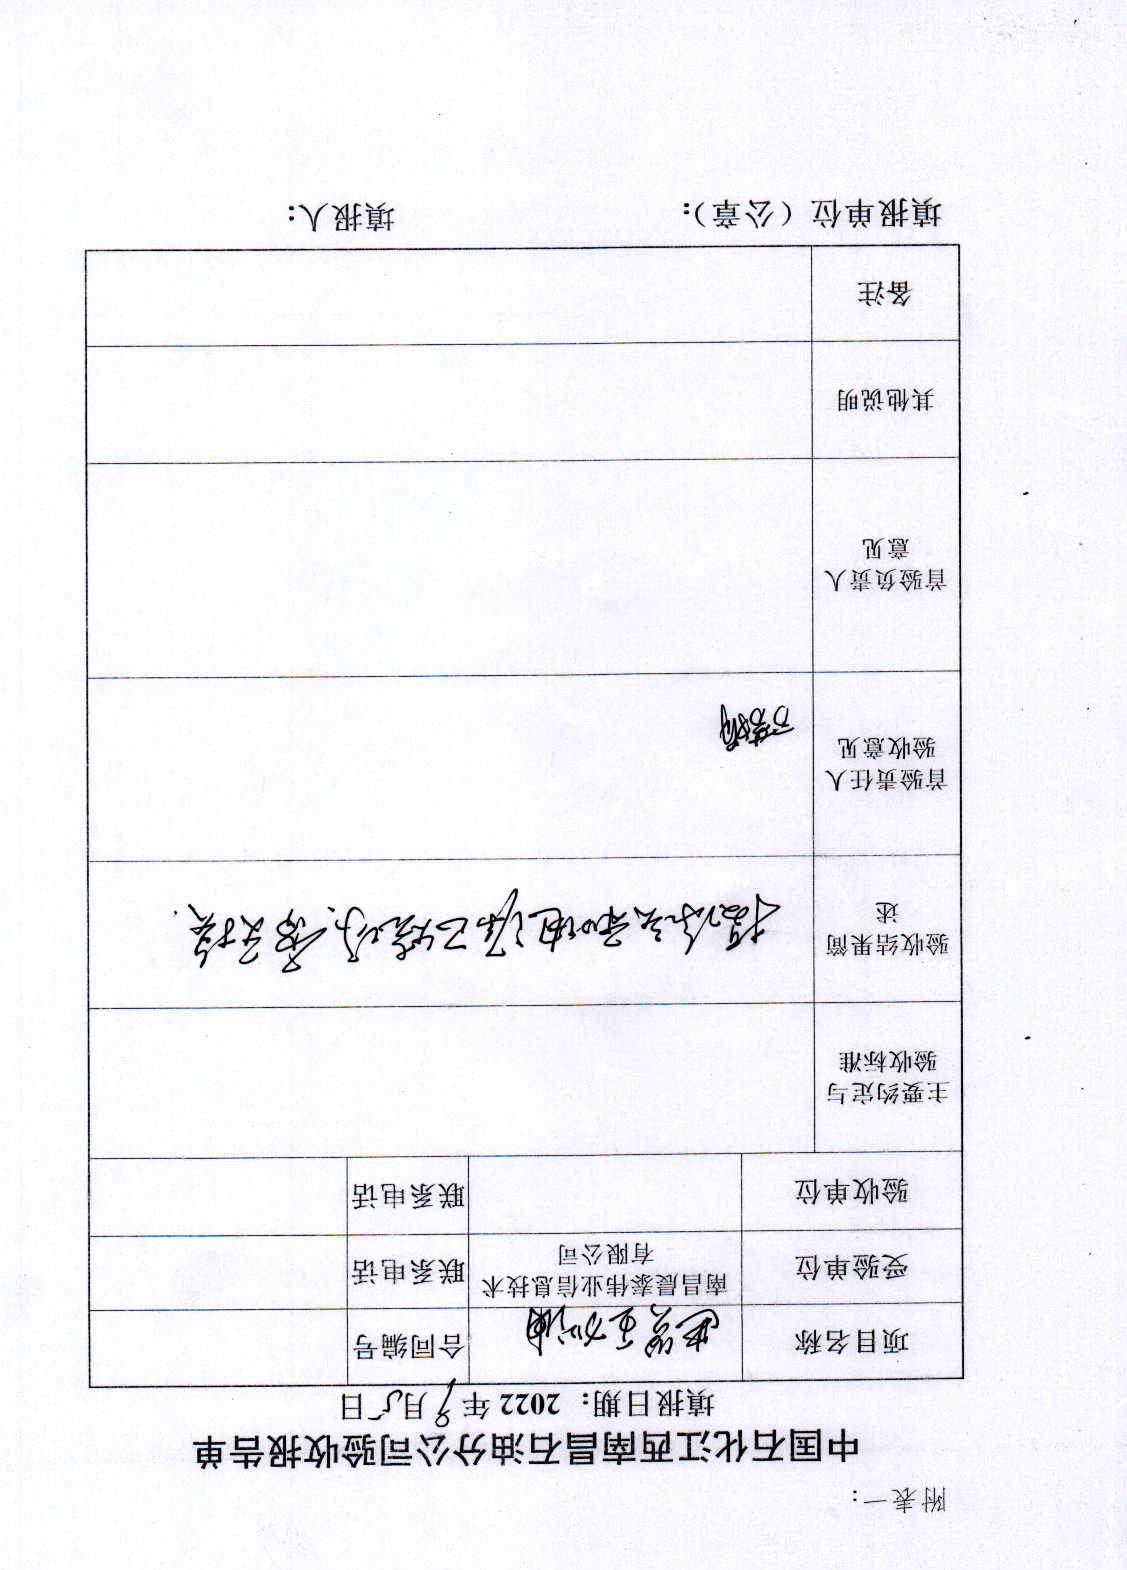 附表一：
中国石化江西南昌石油分公司验收报告单
填报日期：2022年9月5日
项目名称 进贤 加油 合同编号
受验单位 南昌晨泰伟业信息技术 联系电话
有限公司
验收单位 联系电话
主要约定与
验收标准
验收结果简
述
电源已烧坏，需更换.
首验责任人
验收意见
首验负责人
意见
其他说明
备注
填报单位（公章）： 填报人：